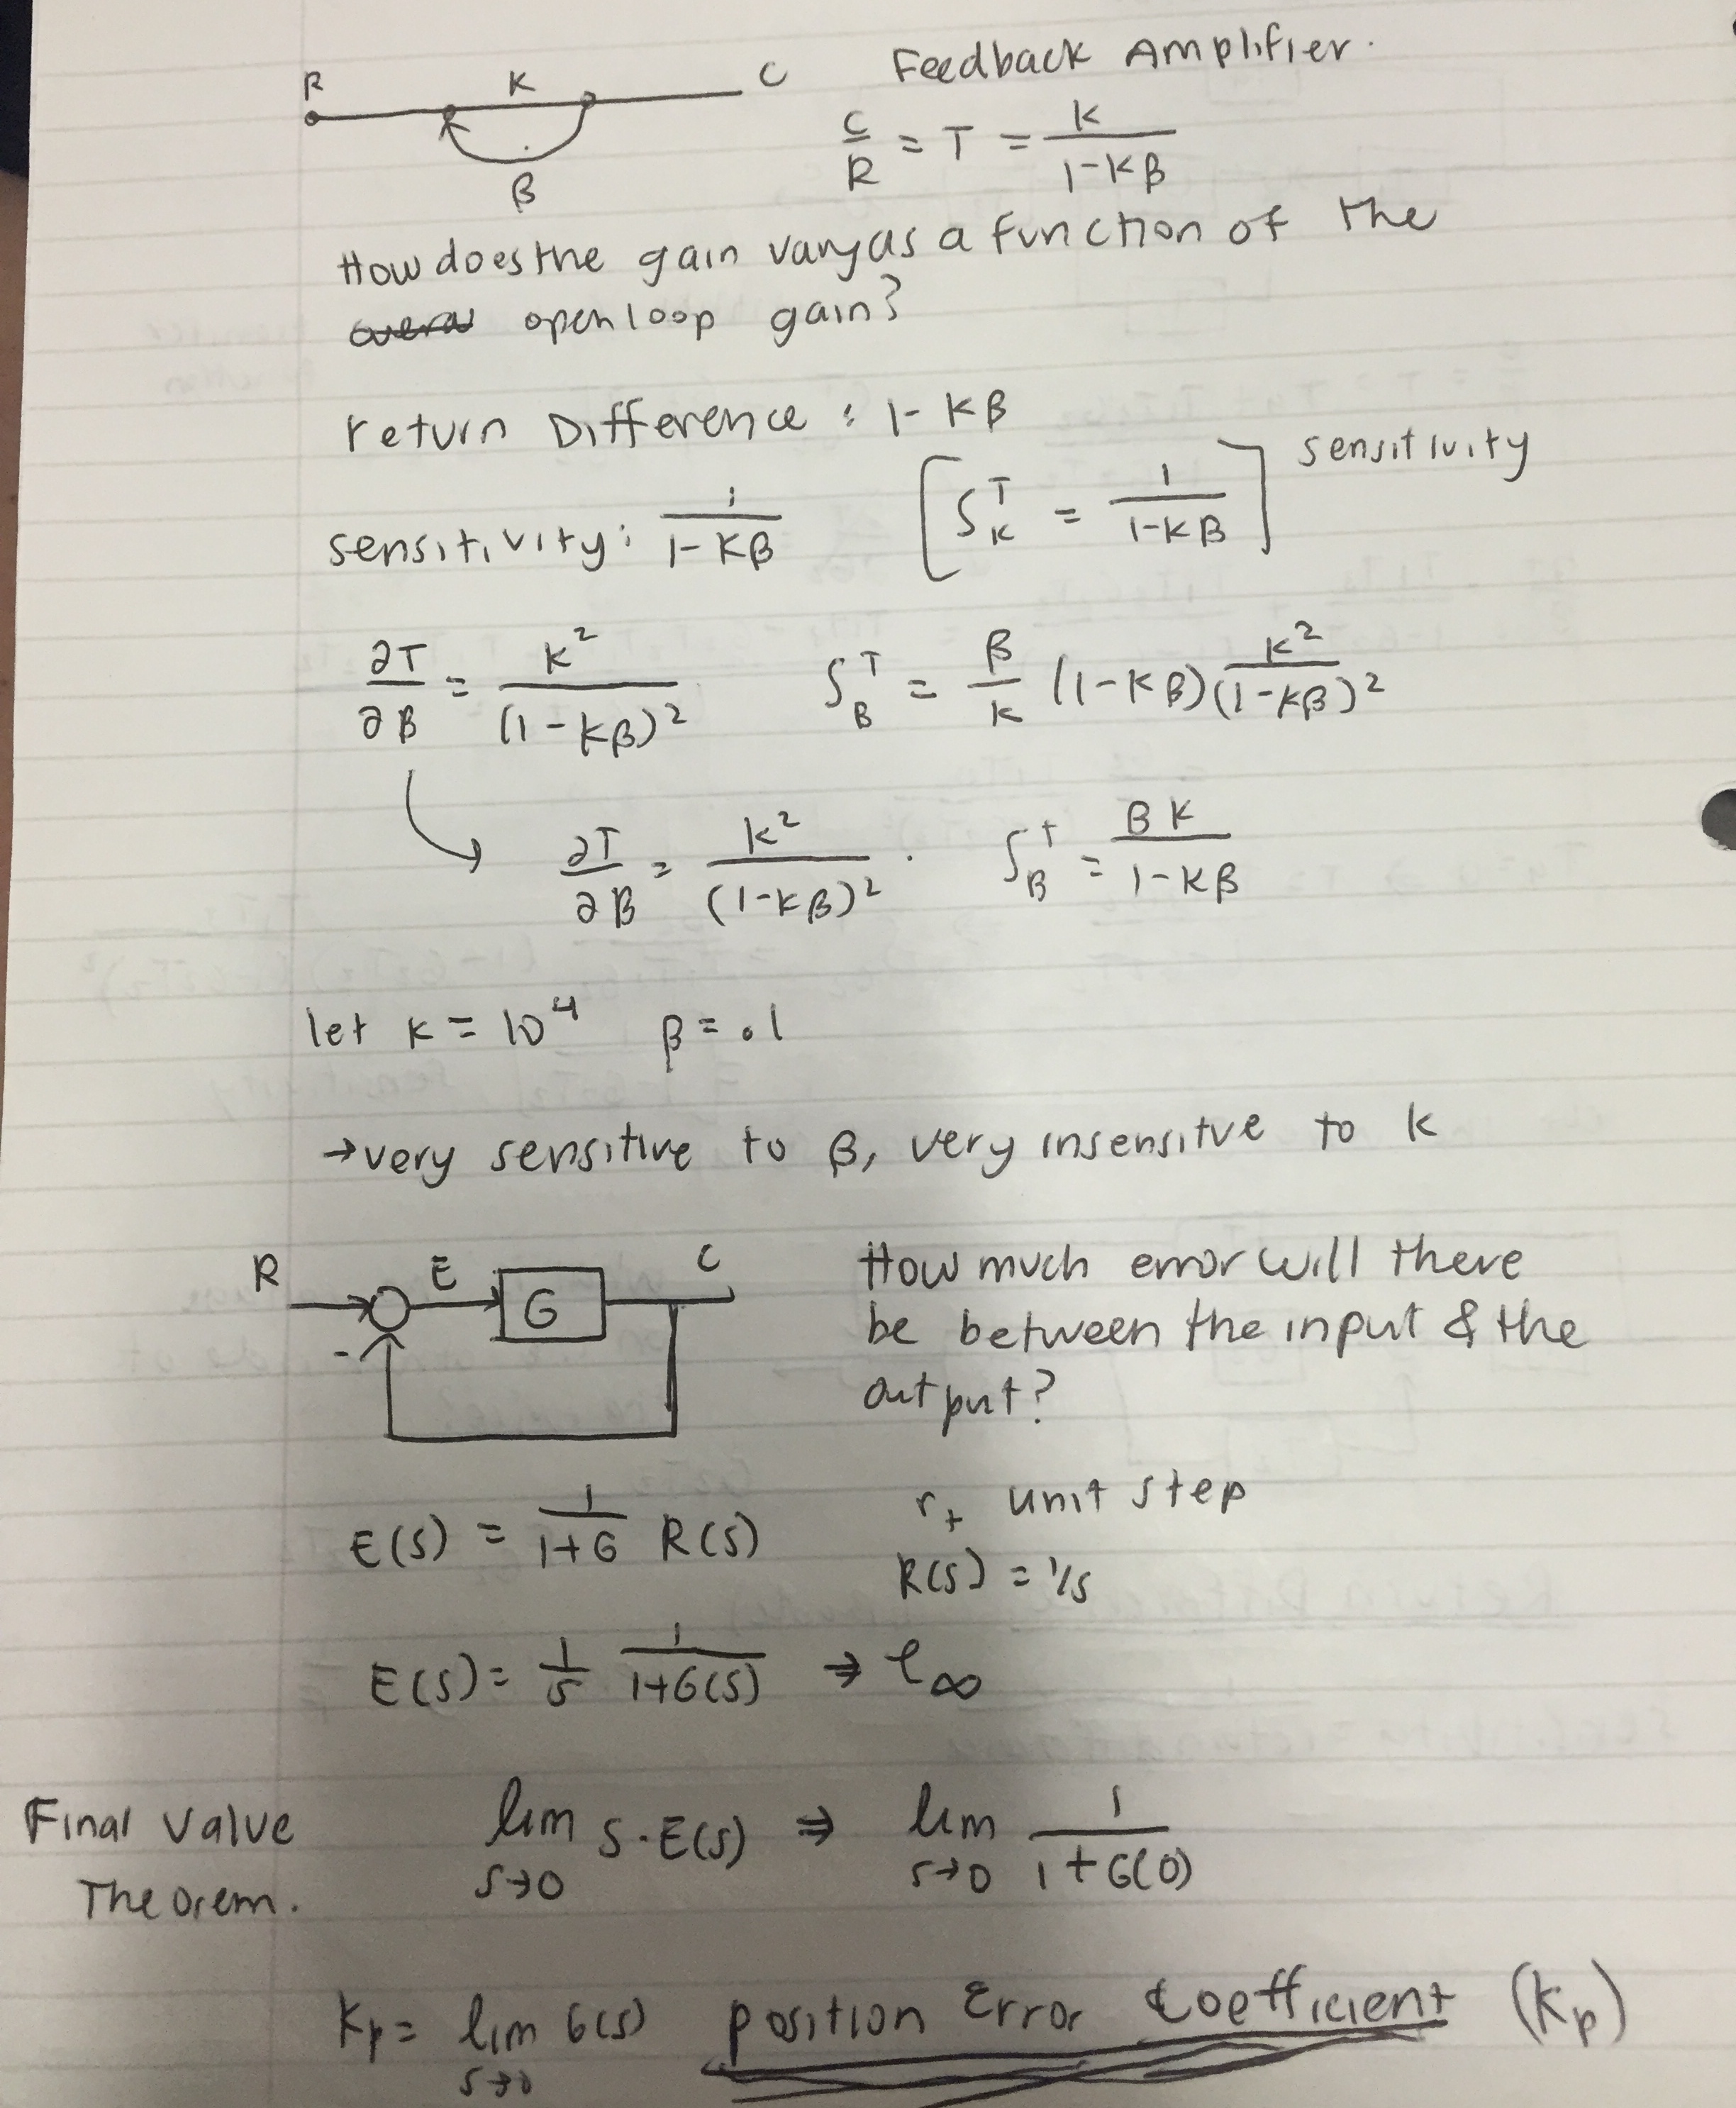 R K C Feedback Amplifier.
β
C/R = T = K/(1-Kβ)
How does the gain vary as a function of the
overal open loop gain?
return Difference : 1-Kβ
sensitivity: 1/(1-Kβ) [S_K^T = 1/(1-Kβ)] sensitivity
∂T/∂β = K²/(1-Kβ)² S_β^T = β/K (1-Kβ) K²/(1-Kβ)²
∂T/∂β = K²/(1-Kβ)² . S_β^T = βK/(1-Kβ)
let K = 10⁴ β = .1
→ very sensitive to β, very insensitve to K
R E G C
-
How much error will there
be between the input & the
output?
E(s) = 1/(1+G) R(s)
r_t unit step
R(s) = 1/s
E(s) = 1/s 1/(1+G(s)) ⇒ e_∞
Final Value
Theorem.
lim s→0 s·E(s) ⇒ lim s→0 1/(1+G(0))
Kp = lim s→0 G(s) position Error Coefficient (Kp)